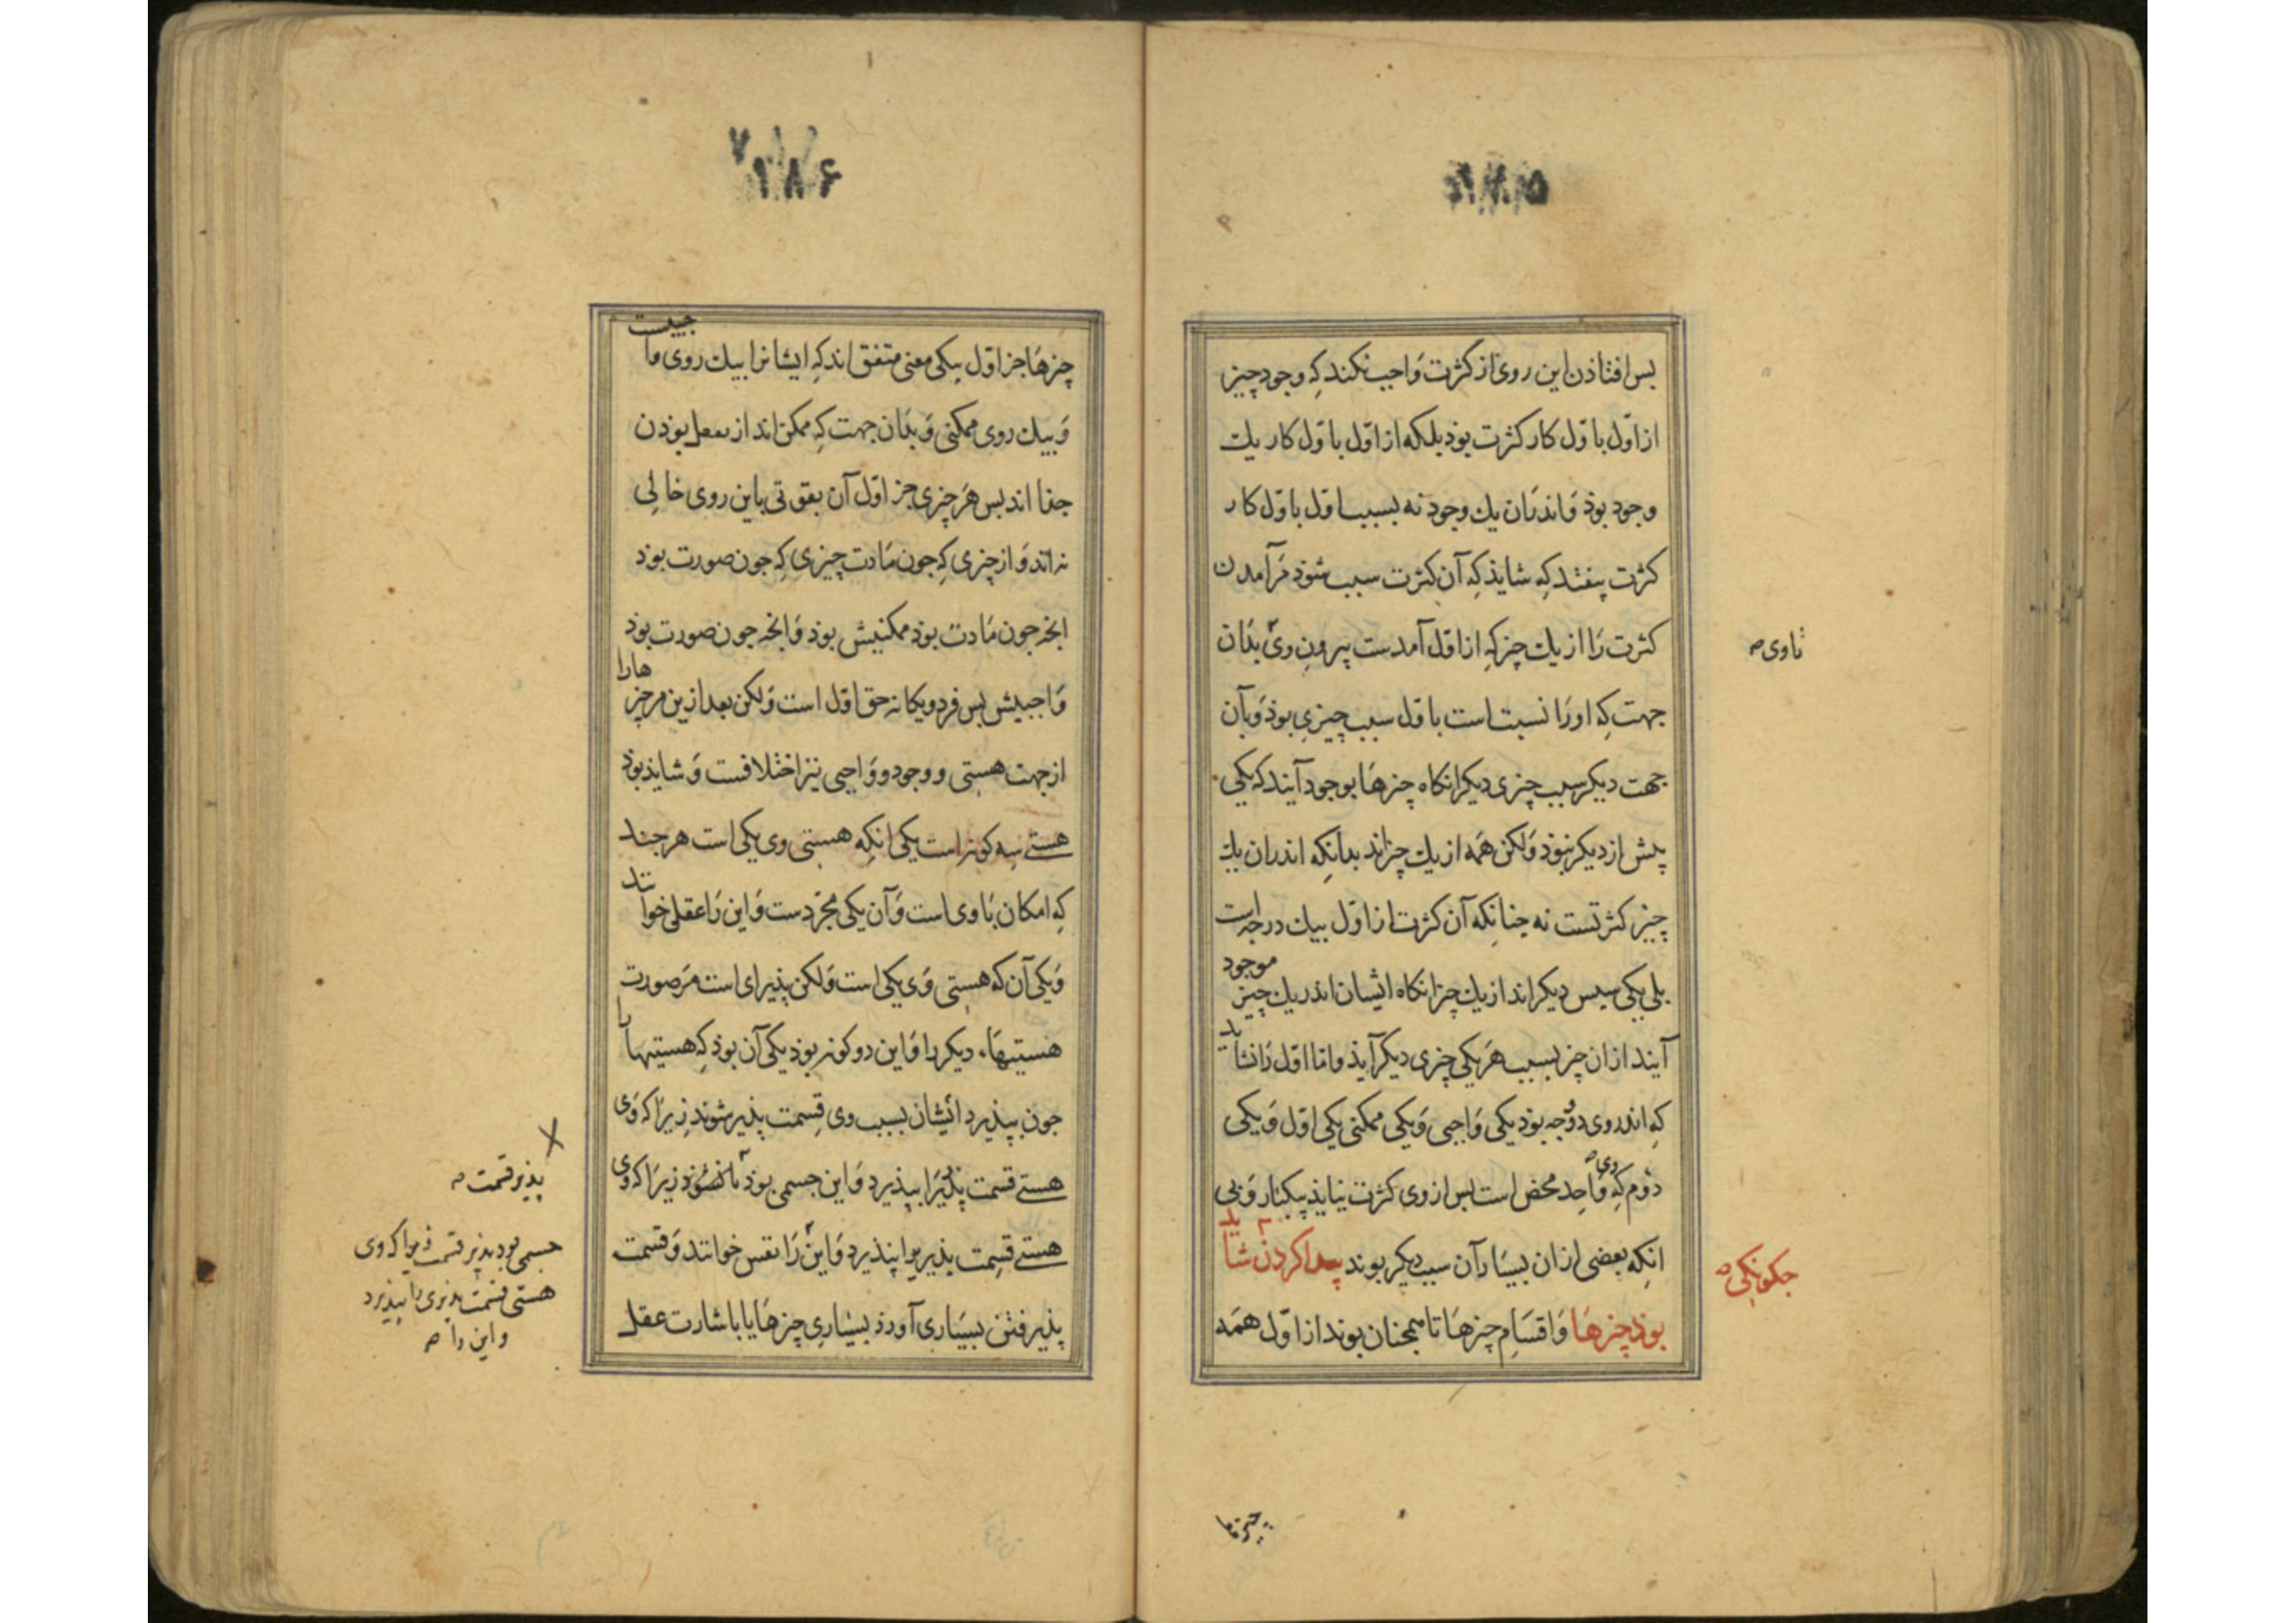 ۲۸۵
بس افتاذن این روی از کثرت وَاجب نکند کِه وجود چیز
از اوّل باوّل کار کثرت بوذ بلکه از اوّل باوّل کار یك
وجود بوذ وَاندران یك وجود نه بسبب اوّل باوّل کار
کثرت بیفتد کِه شایذ کِه آن کثرت سبب شوذ مَرآمدن
کثرت رَا از یك چیز کِه از اوّل آمدست بیرون وَی بدَان
تاوی
جهت کِه اورَا نسبت است باوّل سبب چیزی بوذ وَبآن
جهت دیکر سبب چیزی دیکر انکاه چیزهَا بوجود آیند که یکی
پیش از دیکر نبوذ وَلکن همَه از یك چیزاند بدانکِه اندران یك
چیز کثرتست نه چنانکه آن کثرت از اوّل بیك درجه است
بلی یکی سپس دیکراند از یك چیز انکاه ایشان اندر یك چیز موجود
آیند ازان چیز بسبب هَر یکی چیزی دیکر آیذ واما اوّل رَا نشاید
کِه اندروی دو وجه بوذ یکی وَاجبی وَیکی ممکنی یکی اوّل وَیکی
دوُم کِه وی وَاحِد محض است بس از وی کثرت نیایذ بیکبار وَبی
انکِه بعضی ازان بسیَار آن سبب دیکر بوند پیدا کردن شاید
چکونکی
بوذ چیزهَا وَاقسَامِ چیزهَا تا همچنان بوند از اوّل همَه
چیزها
۲۸۶
چیزهَا جز اوّل بیکی معنی متفق اند کِه ایشانرا بیك روی واجبیست
وَبیك روی ممکنی وَبدَان جهت کِه ممکن اند از بفعل بوذن
جذا اند بس هَر چیزی جز اوّل آن بقوّتی باین روی خالِی
نه اند وَاز چیزی کِه جون مَادت چیزی کِه جون صورت بوذ
انجه جون مَادت بوذ ممکنیش بوذ وَانجه جون صورت بوذ
وَاجبیش بس فرد ویکانه حق اوّل است وَلکن بعد ازین مر چیزهارا
از جهت هستی ووجود ووَاجبی نیز اختلافست وَشایذ بوذ
هستی سه کونه است یکی انکِه هستی وی یکی است هر جند
کِه امکان بَاوی است وَآن یکی مجرّدست وَاین رَا عقل خوانند
وَیکی آن که هستی وَی یکی است وَلکن پذیرای است مَرصورت
هستیهَاء دیکر را وَاین دو کونه بوذ یکی آن بوذ کِه هستیها را
جون بپذیرد ایشان بسبب وی قِسمت پذیر شوند زیرَا که وَی
هستی قسمت پذیرَا بپذیرد وَاین جسمی بوذ نا زیرَا که وَی
پذیر قسمت
هستی قسمت پذیر را بپذیرد وَاین رَا نفس خوانند وَقسمت
جسمی بود پذیر قسمت زیرا که وی
هستی قسمت پذیری را بپذیرد
واین را
پذیرفتن بسیَاری آورد بسیَاریِ چیزهَا یا باشارت عقل